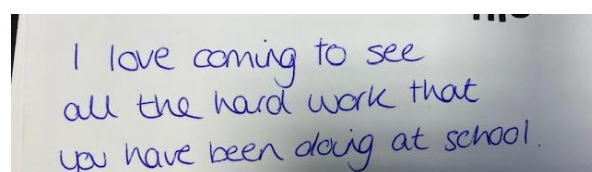 I love coming to see
all the hard work that
you have been doing at school.